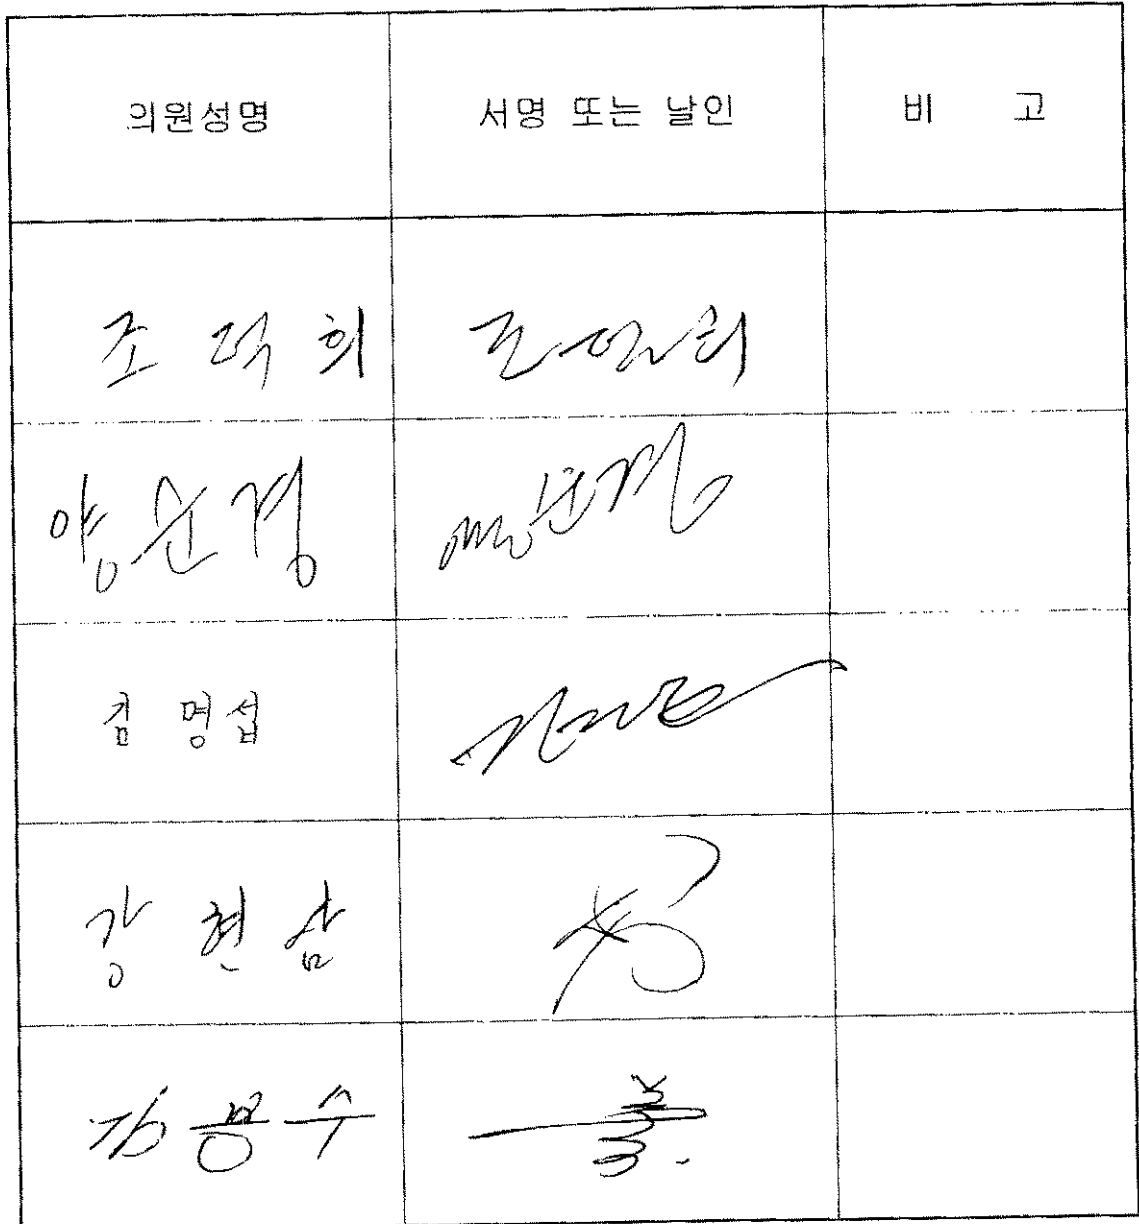 의원성명 서명 또는 날인 비 고
조 덕 희 조덕희
양순경 양순경
김 명섭
강 현 삼
김용수